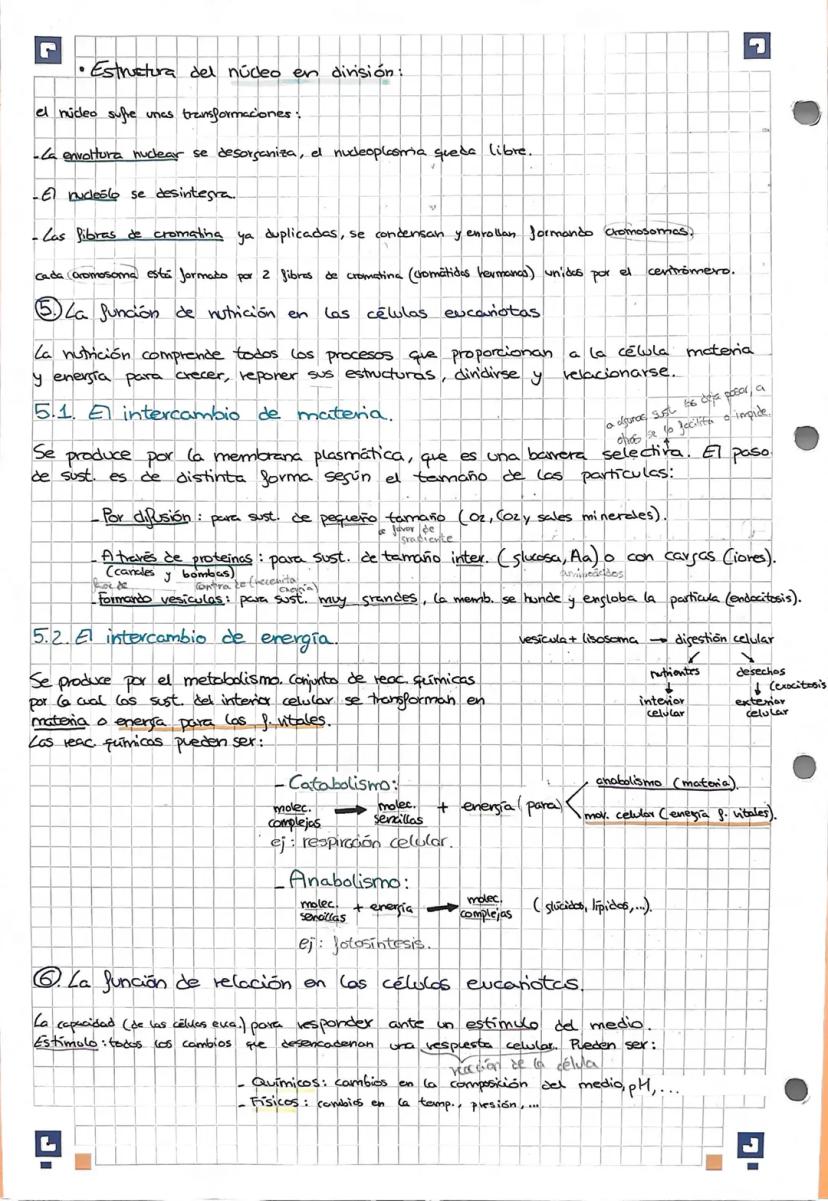 • Estructura del núcleo en división:
el núcleo sufre unas transformaciones:
- La envoltura nuclear se desorganiza, el nucleoplasma queda libre.
- El nucleolo se desintegra.
- Las fibras de cromatina ya duplicadas, se condensan y enrollan formando cromosomas;
cada cromosoma está formado por 2 fibras de cromatina (cromátidas hermanas) unidas por el centrómero.
5. La función de nutrición en las células eucariotas
La nutrición comprende todos los procesos que proporcionan a la célula materia
y energía para crecer, reponer sus estructuras, dividirse y relacionarse.
5.1. El intercambio de materia.
a algunas sust. las deja pasar, a
otras se lo facilita o impide.
Se produce por la membrana plasmática, que es una barrera selectiva. El paso
de sust. es de distinta forma según el tamaño de las partículas:
- Por difusión: para sust. de pequeño tamaño (O2, CO2 y sales minerales).
a favor de
gradiente
- A través de proteínas: para sust. de tamaño inter. (glucosa, Aa) o con cargas (iones).
(canales y bombas)
aminoácidos
contra de (necesita
energía)
- Formando vesículas: para sust. muy grandes, la memb. se hunde y engloba la partícula (endocitosis).
5.2. El intercambio de energía.
vesícula + lisosoma → digestión celular
nutrientes desechos
↓ ↓ (exocitosis
interior exterior
celular celular
Se produce por el metabolismo. Conjunto de reac. químicas
por la cual las sust. del interior celular se transforman en
materia o energía para las f. vitales.
Las reac. químicas pueden ser:
- Catabolismo:
molec. complejas → molec. sencillas + energía (para)
anabolismo (materia).
mov. celular (energía f. vitales).
ej: respiración celular.
- Anabolismo:
molec. sencillas + energía → molec. complejas (glúcidos, lípidos,...).
ej: fotosíntesis.
6. La función de relación en las células eucariotas.
La capacidad (de las células euca.) para responder ante un estímulo del medio.
Estímulo: todos los cambios que desencadenan una respuesta celular. Pueden ser:
reacción de la célula
- Químicos: cambios en la composición del medio, pH,...
- Físicos: cambios en la temp., presión,...